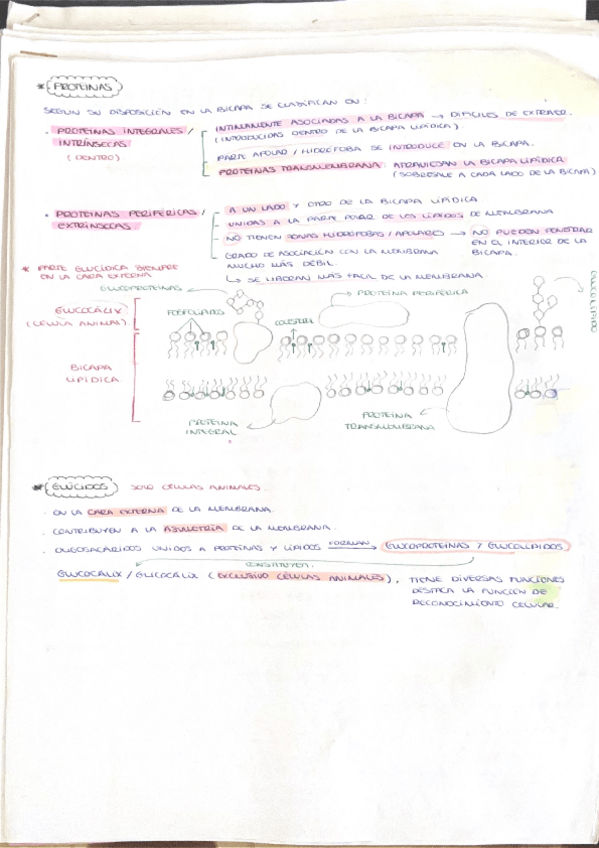 * PROTEINAS
SEGÚN SU DISPOSICIÓN EN LA BICAPA SE CLASIFICAN EN:
· PROTEÍNAS INTEGRALES/ INTRÍNSECAS (DENTRO)
INTIMAMENTE ASOCIADAS A LA BICAPA → DIFÍCILES DE EXTRAER.
(INTRODUCIDAS DENTRO DE LA BICAPA LIPÍDICA).
PARTE APOLAR / HIDRÓFOBA SE INTRODUCE EN LA BICAPA.
PROTEÍNAS TRANSMEMBRANA: ATRAVIESAN LA BICAPA LIPÍDICA
(SOBRESALE A CADA LADO DE LA BICAPA)
· PROTEÍNAS PERIFÉRICAS / EXTRÍNSECAS
- A UN LADO Y OTRO DE LA BICAPA LIPÍDICA
- UNIDAS A LA PARTE POLAR DE LOS LÍPIDOS DE MEMBRANA
- NO TIENEN ZONAS HIDRÓFOBAS / APOLARES → NO PUEDEN PENETRAR
EN EL INTERIOR DE LA
BICAPA.
- GRADO DE ASOCIACIÓN CON LA MEMBRANA
MUCHO MÁS DÉBIL.
↳ SE LIBERAN MÁS FÁCIL DE LA MEMBRANA
* PARTE GLUCÍDICA SIEMPRE
EN LA CARA EXTERNA
GLUCOPROTEÍNAS
PROTEÍNA PERIFÉRICA
GLUCOLÍPIDO
GLUCOCÁLIX
(CÉLULA ANIMAL)
FOSFOLÍPIDOS
COLESTEROL
BICAPA
LIPÍDICA
PROTEÍNA
INTEGRAL
PROTEÍNA
TRANSMEMBRANA
* GLÚCIDOS SOLO CÉLULAS ANIMALES.
· EN LA CARA EXTERNA DE LA MEMBRANA.
· CONTRIBUYEN A LA ASIMETRÍA DE LA MEMBRANA.
· OLIGOSACÁRIDOS UNIDOS A PROTEÍNAS Y LÍPIDOS FORMAN → GLUCOPROTEÍNAS Y GLUCOLÍPIDOS
CONSTITUYEN
GLUCOCÁLIX / GLICOCÁLIX (EXCLUSIVO CÉLULAS ANIMALES), TIENE DIVERSAS FUNCIONES
DESTACA LA FUNCIÓN DE
RECONOCIMIENTO CELULAR.